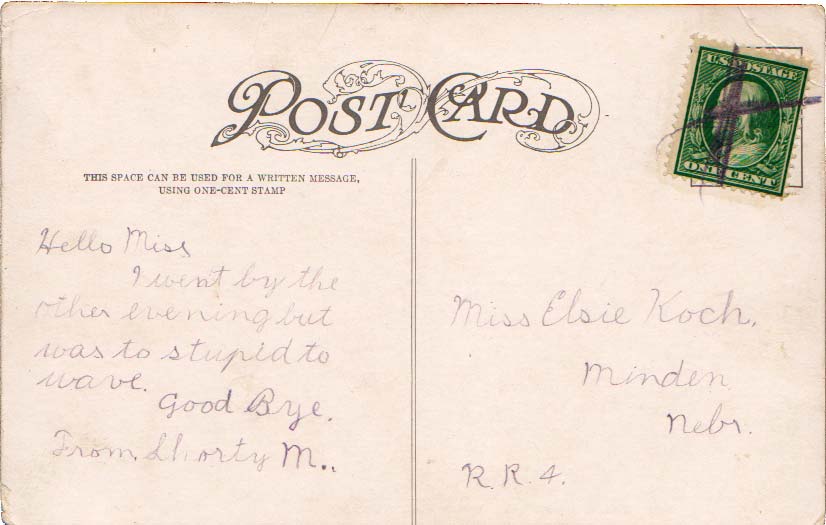 POST CARD
U.S. POSTAGE
ONE CENT
THIS SPACE CAN BE USED FOR A WRITTEN MESSAGE,
USING ONE-CENT STAMP
Hello Miss
I went by the
other evening but
was to stupid to
wave.
Good Bye.
From Shorty M..
Miss Elsie Koch.
Minden
Nebr.
R.R. 4.